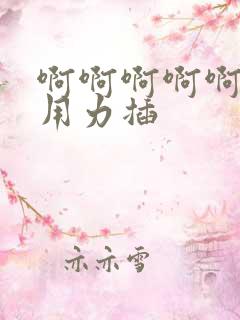 啊啊啊啊啊
用力插
示示雪